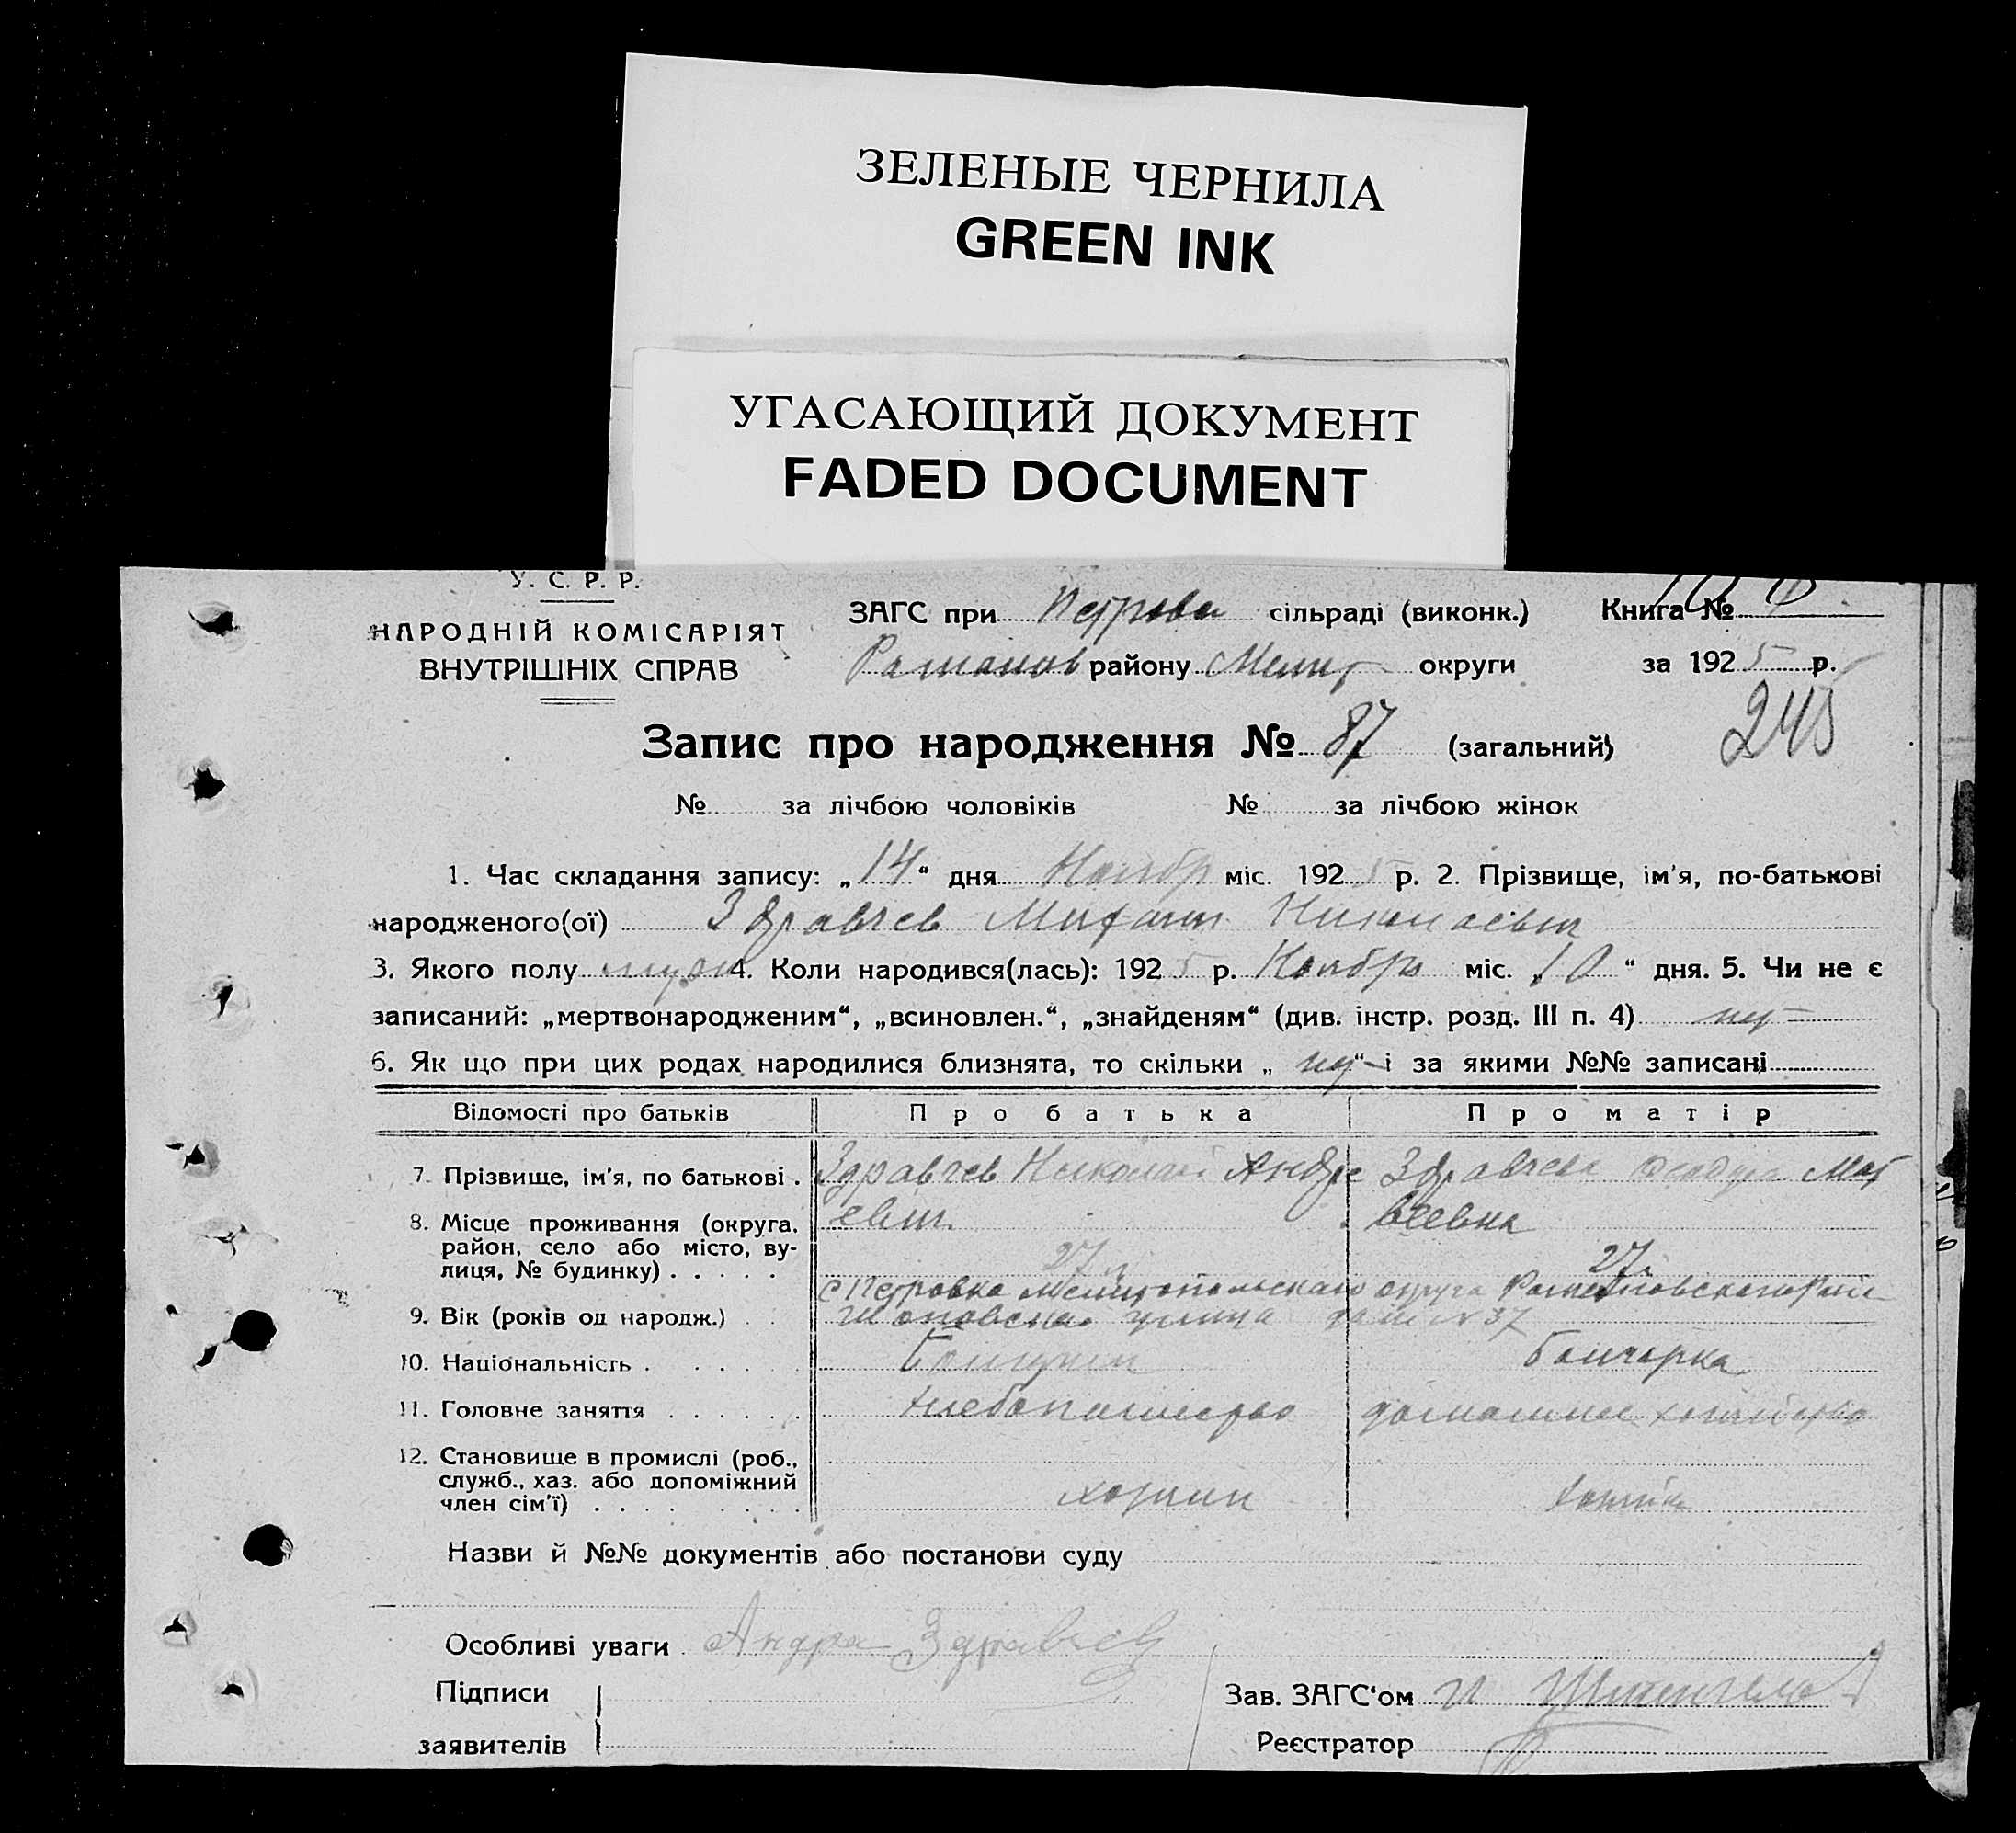 ЗЕЛЕНЫЕ ЧЕРНИЛА
GREEN INK
УГАСАЮЩИЙ ДОКУМЕНТ
FADED DOCUMENT
У. С. Р. Р.
НАРОДНІЙ КОМІСАРІЯТ
ВНУТРІШНІХ СПРАВ
ЗАГС при Петрова сільраді (виконк.) Книга №
Романов району Мелит округи за 1925 р.
245
Запис про народження № 87 (загальний)
№ за лічбою чоловіків № за лічбою жінок
1. Час складання запису: „14“ дня Ноябр міс. 1925 р. 2. Прізвище, ім'я, по-батькові
народженого(ої) Здравчев Николаевич
3. Якого полу муж 4. Коли народився(лась): 1925 р. Ноябрь міс. „10“ дня. 5. Чи не є
записаний: „мертвонародженим“, „всиновлен.“, „знайденям“ (див. інстр. розд. III п. 4) нет
6. Як що при цих родах народилися близнята, то скільки „нет“ і за якими №№ записані
Відомості про батьків Про батька Про матір
7. Прізвище, ім'я, по батькові . Здравчев Николай Андре Здравчева Мат
евич. веевна
8. Місце проживання (округа, район, село або місто, вулиця, № будинку) . . . . .
27 л 27 л
с Петровка Мелитопольскаго округа Романовскаго Рай
9. Вік (років од народж.) . . улица дом № 37
10. Національність . . . . . Болгарин Болгарка
11. Головне заняття . . . . . . хлебопашество домашнее хозяйство
12. Становище в промислі (роб., служб., хаз. або допоміжний член сім'ї) . . . . . . . хозяин хозяйка
Назви й №№ документів або постанови суду
Особливі уваги Андра Здравчев
Підписи
заявителів
Зав. ЗАГС'ом
Реєстратор